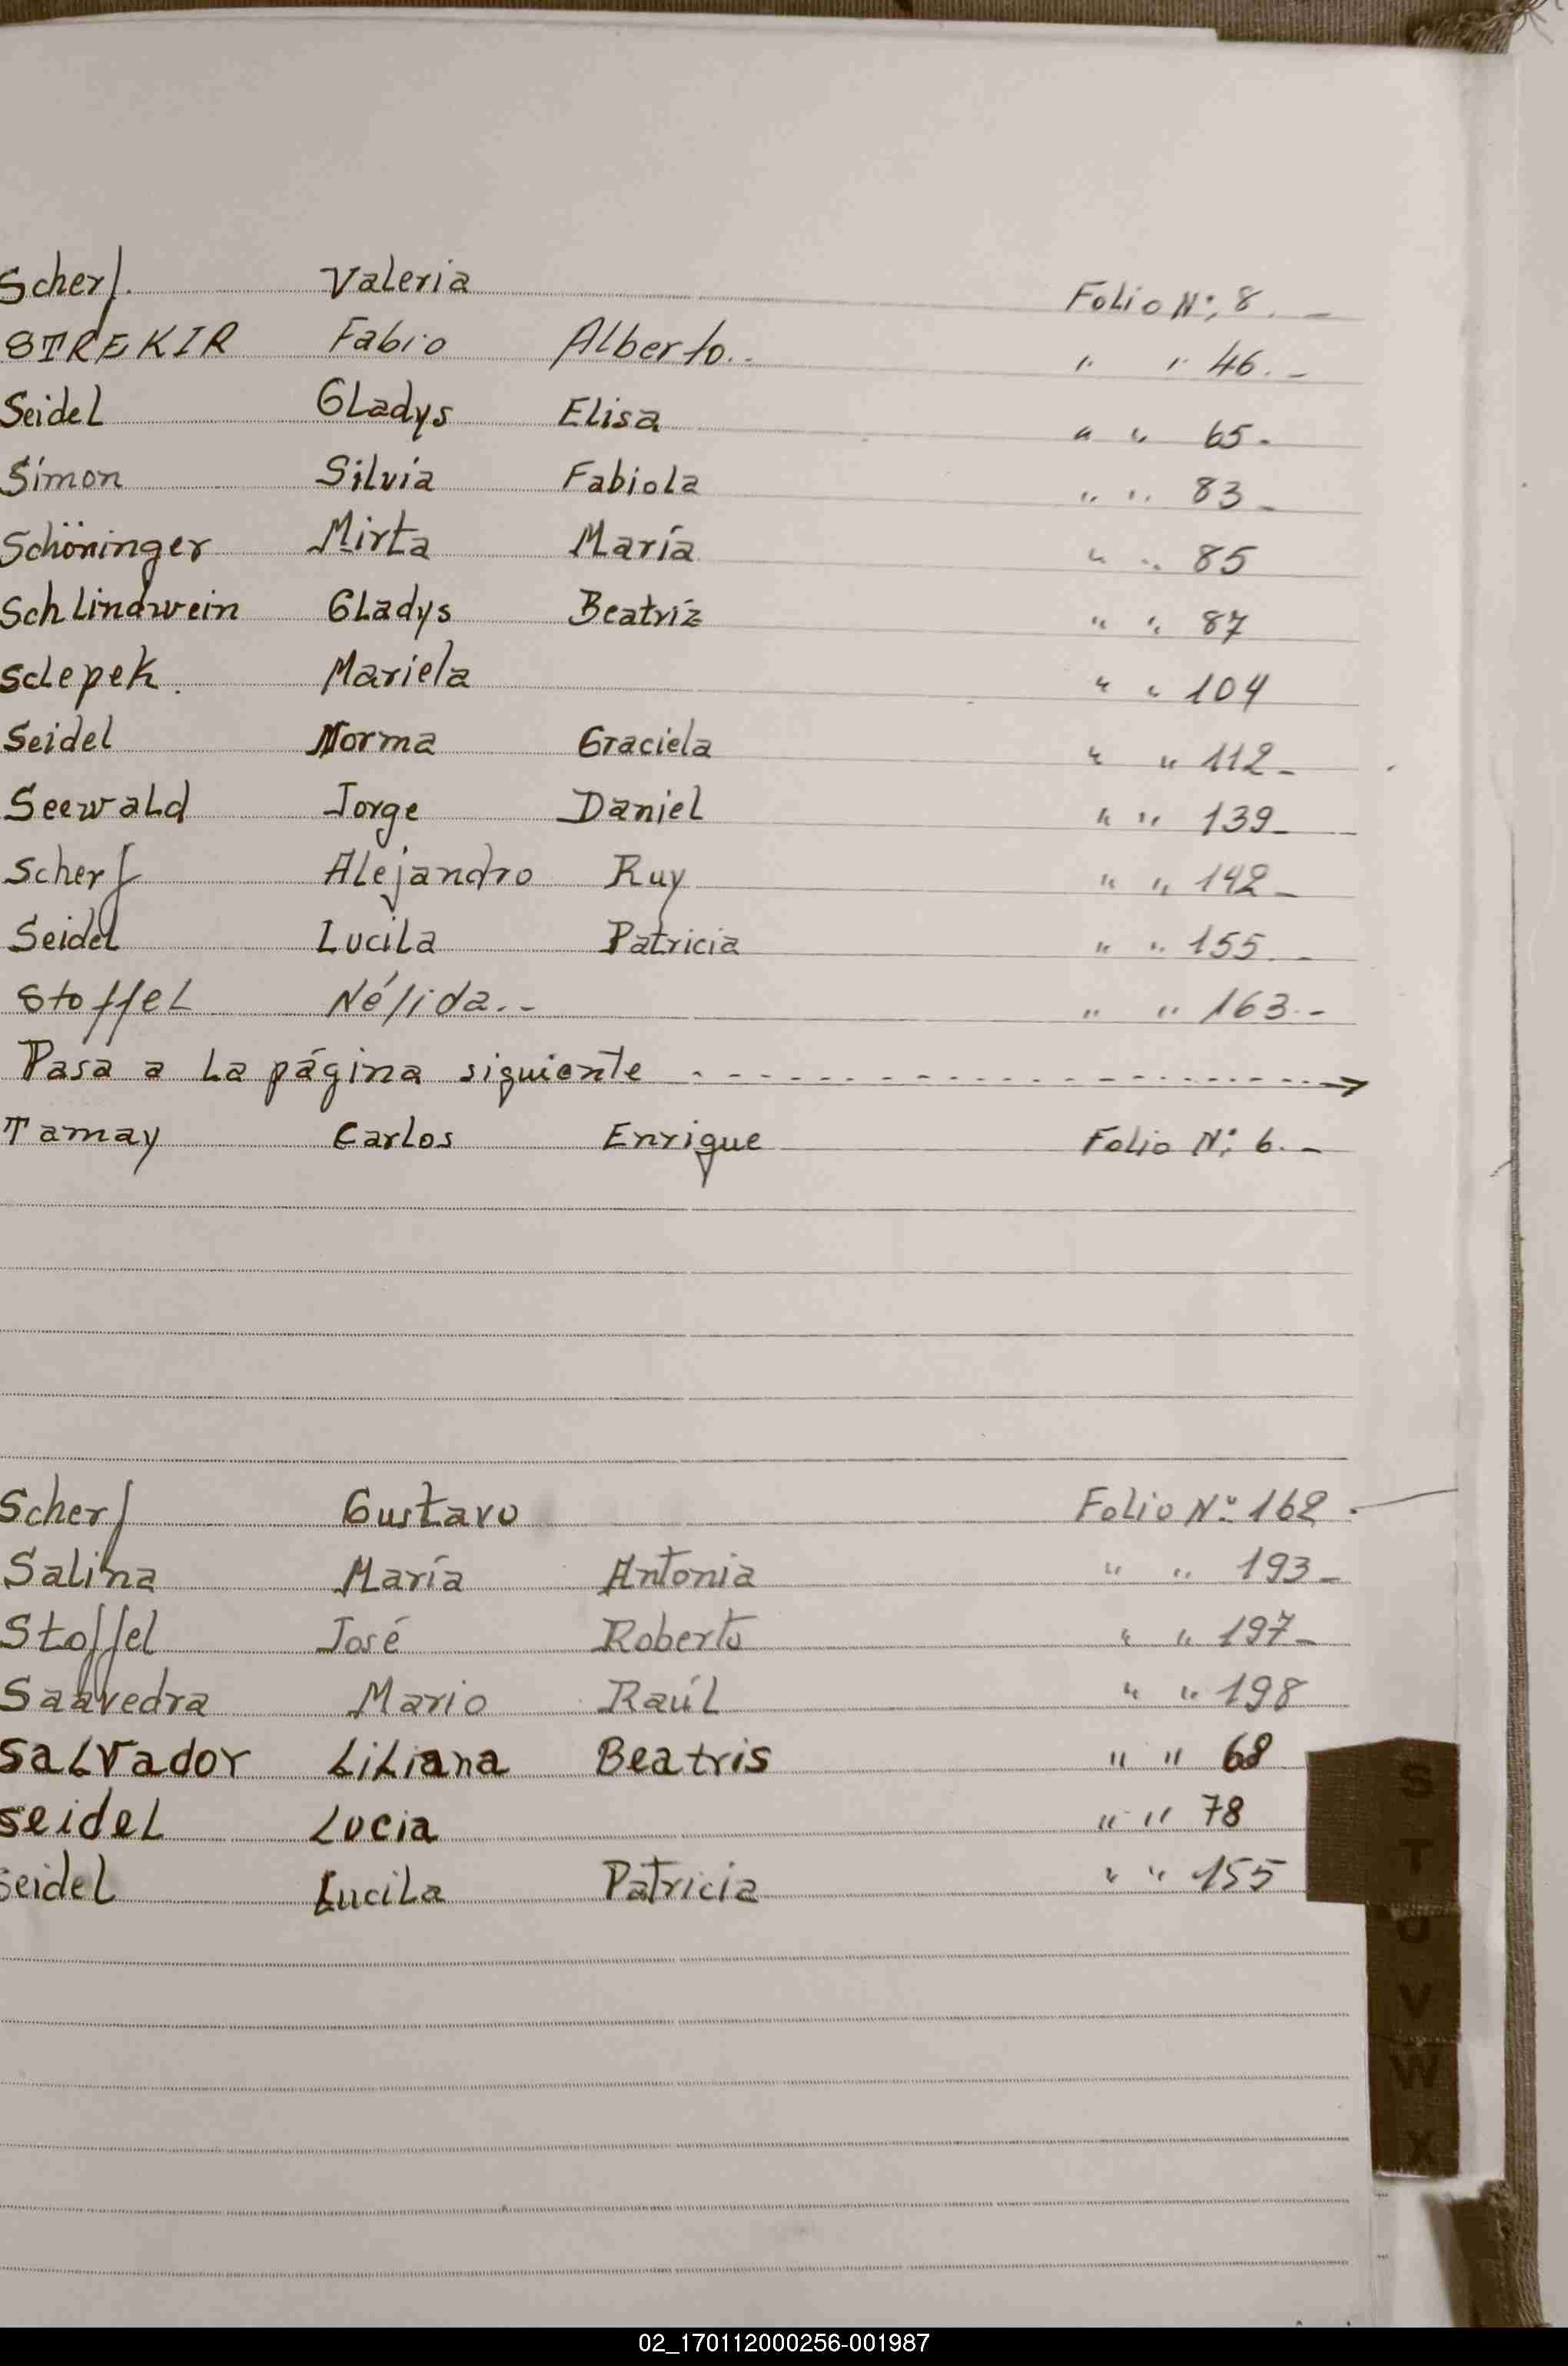 Scherf. Valeria Folio Nº, 8. -
STREKIR Fabio Alberto.. " " 46. -
Seidel Gladys Elisa " " 65 -
Simon Silvia Fabiola " " 83 -
Schöninger Mirta María " " 85
Schlindwein Gladys Beatriz " " 87
Sclepek. Mariela " " 104
Seidel Norma Graciela " " 112 -
Seewald Jorge Daniel " " 139 -
Scherf Alejandro Ruy " " 142 -
Seidel Lucila Patricia " " 155. -
Stoffel Nélida.. - " " 163. -
Pasa a la página siguiente - - - - - - - - - - - - →
Tamay Carlos Enrique Folio Nº: 6. -
Scherf Gustavo Folio Nº 162 -
Salina María Antonia " " 193 -
Stoffel José Roberto " " 197 -
Saavedra Mario Raúl " " 198
Salvador Liliana Beatris " " 68
Seidel Lucia " " 78
Seidel Lucila Patricia " " 155
S
T
U
V
W
X
02_170112000256-001987